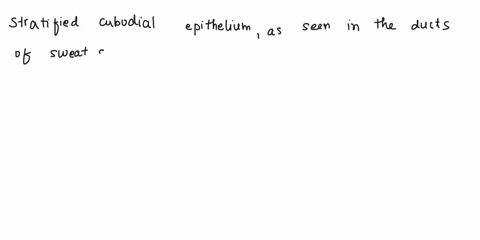 stratified cubodial epithelium, as seen in the ducts
of sweat